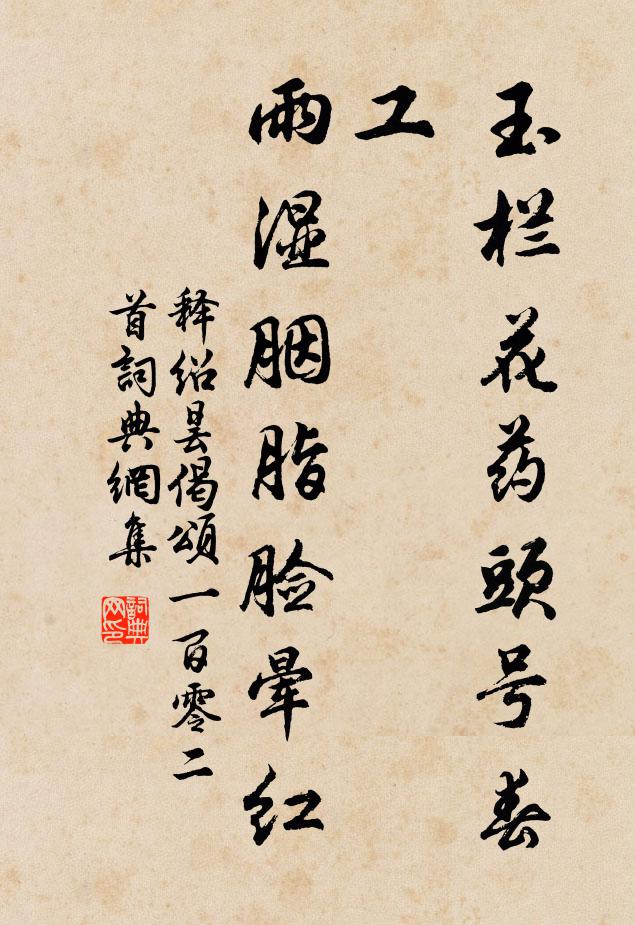 玉栏花药頭号春
工
雨湿胭脂脸晕红
释绍昙偈頌一百零二
首詞典網集
詞典
网印